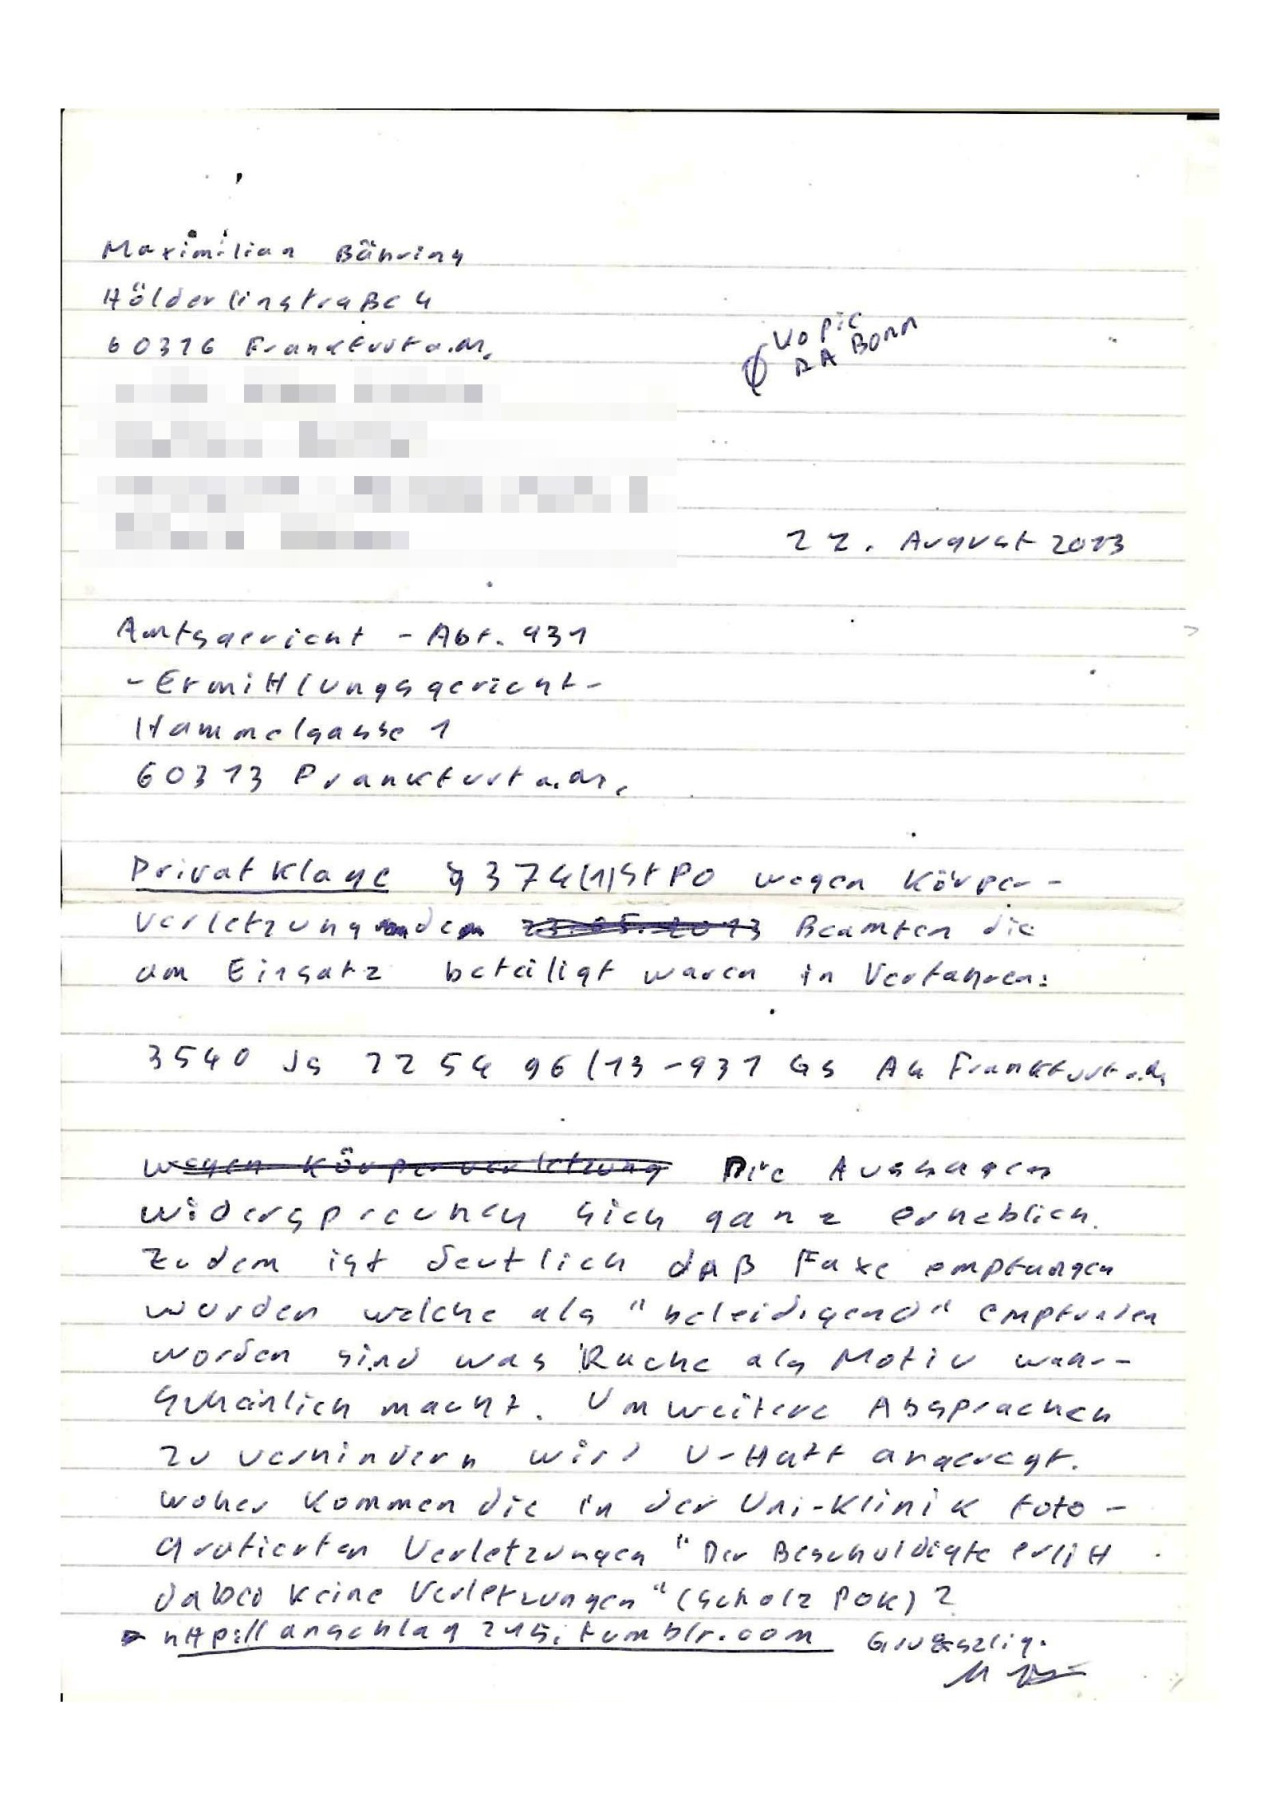 Maximilian Bähring
Hölderlinstraße 4
60316 Frankfurt a.M.
Kopie
RA Bonn
22. August 2013
Amtsgericht - Abt. 931
- Ermittlungsgericht -
Hammelgasse 1
60313 Frankfurt a.M.
Privatklage § 374(1)StPO wegen Körper-
verletzung den 23.05.2013 Beamten die
am Einsatz beteiligt waren in Verfahren:
3540 Js 2254 96/13 - 931 Gs AG Frankfurt a.M.
wegen Körperverletzung Die Aussagen
widersprechen sich ganz erheblich.
Zudem ist deutlich daß Faxe empfangen
wurden welche als "beleidigend" empfunden
worden sind was Rache als Motiv wahr-
scheinlich macht. Um weitere Absprachen
zu verhindern wird U-Haft angeregt.
Woher kommen die in der Uni-Klinik foto-
grafierten Verletzungen "Der Beschuldigte erlitt
dabei keine Verletzungen" (Scholz POK)?
http://anschlag215.tumblr.com Grußszlig.